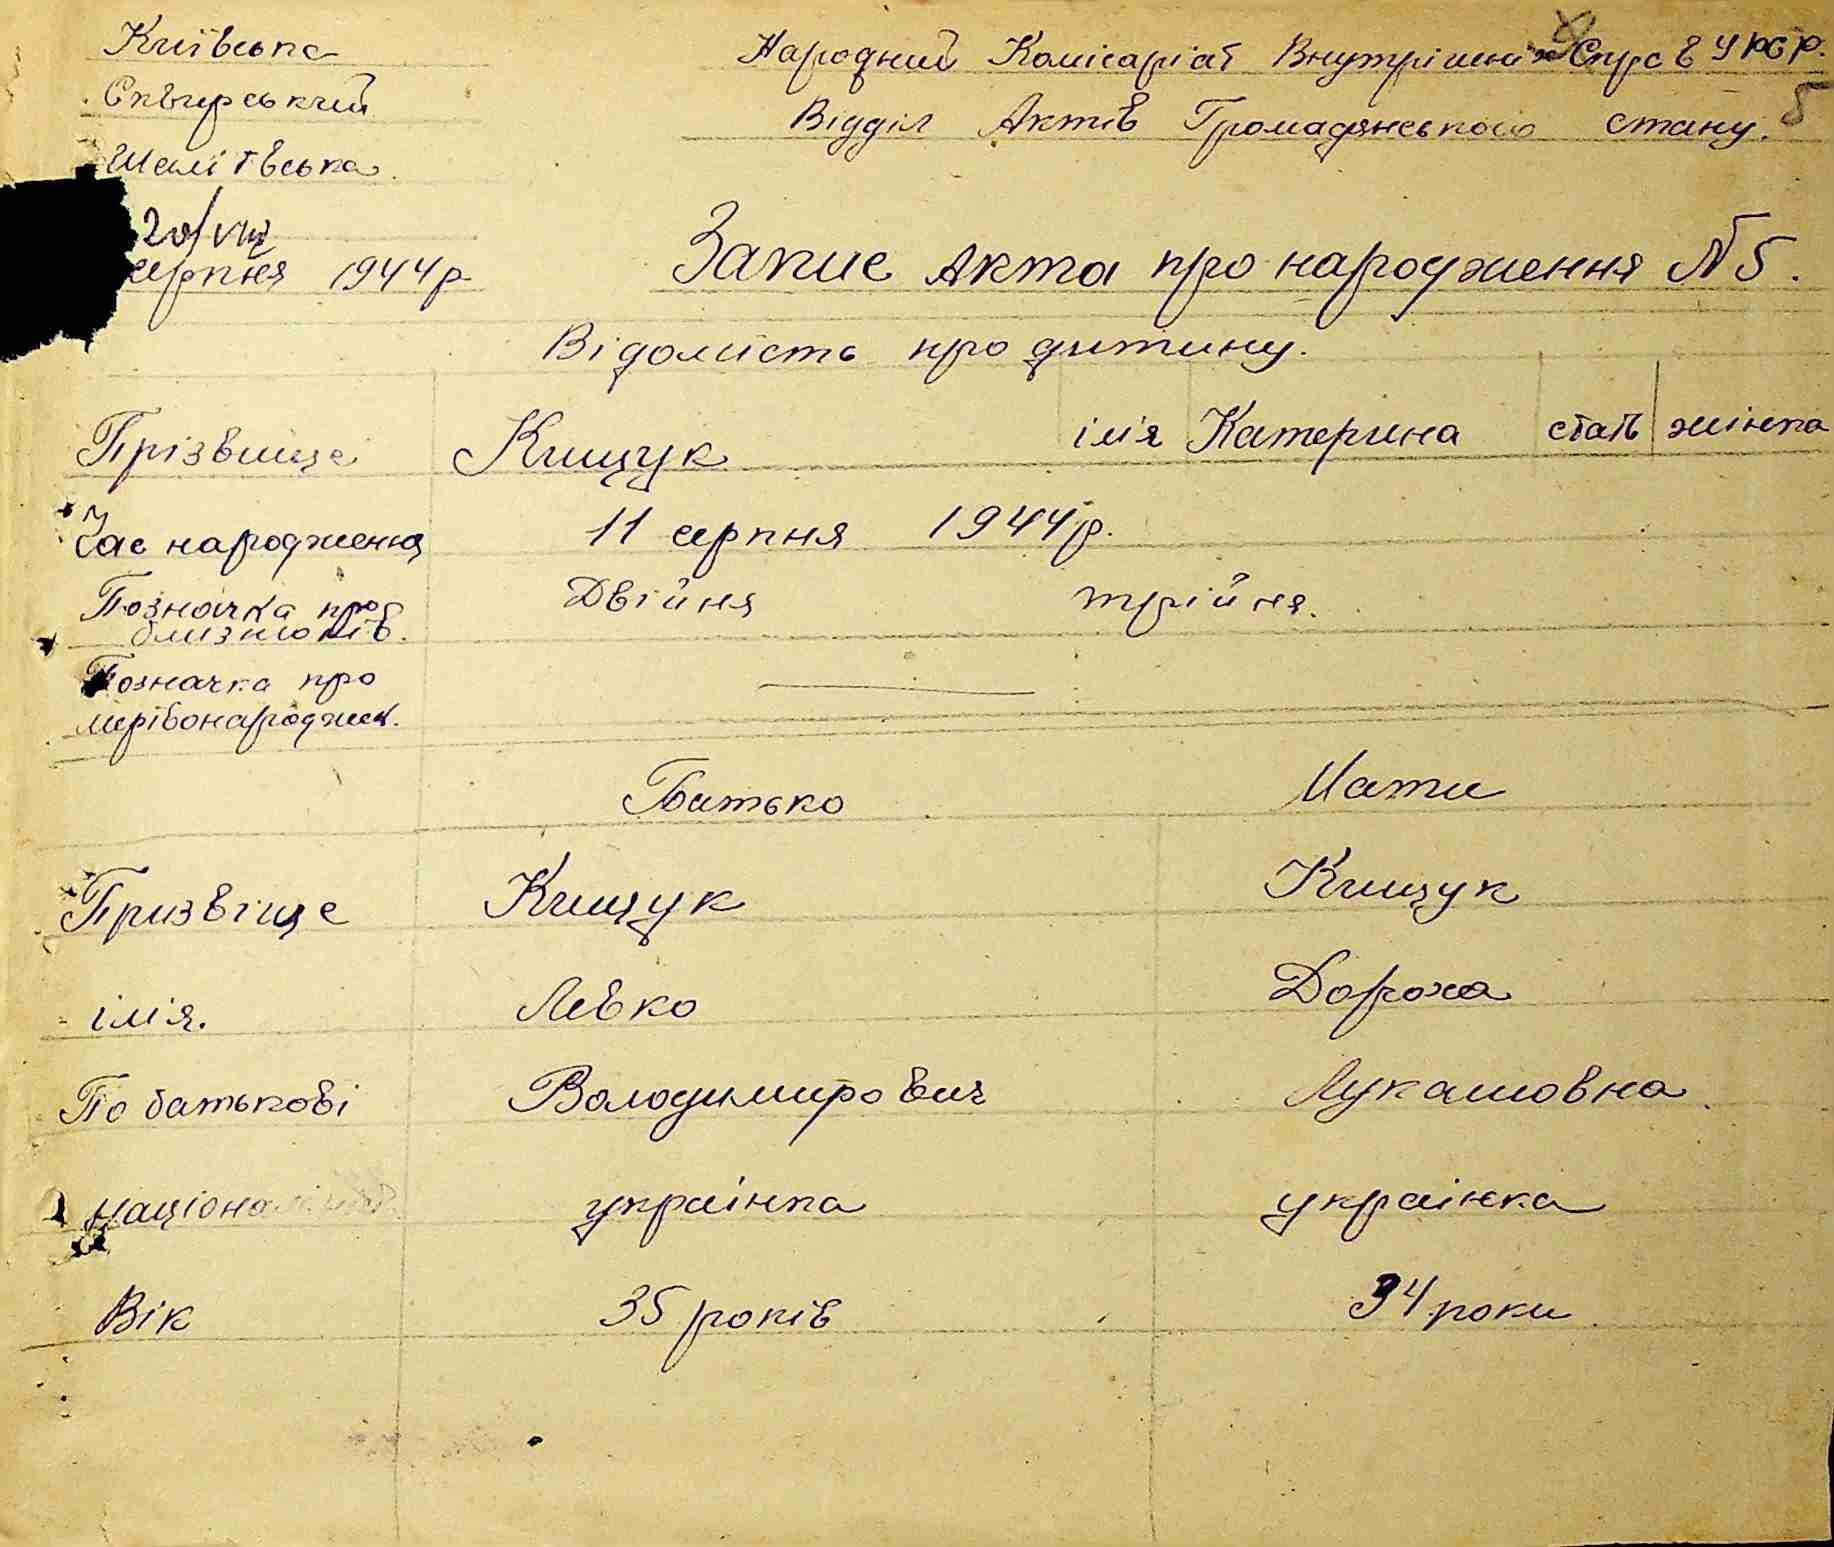 Київська
Сквирський
Шалітвська
20/VIII
серпня 1944 р
Народний Комісаріат Внутрішніх Справ УРСР.
Відділ Актів Громадянського стану.
5
Запис Акта про народження № 5.
Відомість про дитину.
Прізвище Кищук імя Катерина стать жінка
Час народження 11 серпня 1944 р.
Позначка про Двійня трійня.
близнюків.
Позначка про
мерівонароджен.
Батько Мати
Призвіще Кищук Кищук
імія. Левко Дороха
По батькові Володимирович Лукашовна
Націона українка українка
Вік 35 років 34 роки